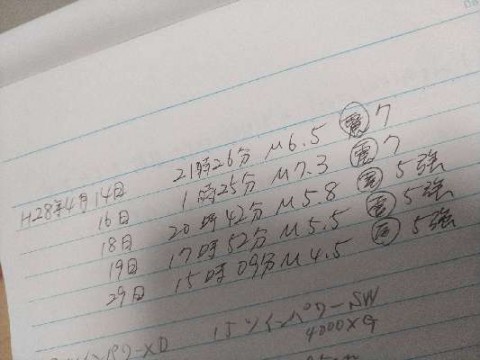 H28年4月14日 21時26分 M6.5 震 7
16日 1時25分 M7.3 震 7
18日 20時42分 M5.8 震 5強
19日 17時52分 M5.5 震 5強
29日 15時09分 M4.5 震 5強
15ツインパワーSW
4000XG